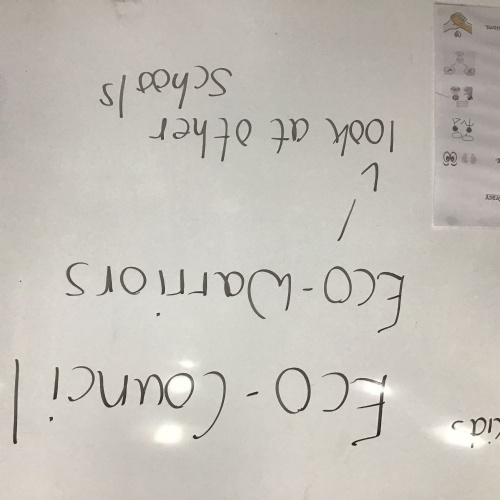 Eco-Council
Eco-Warriors
look at other
schools